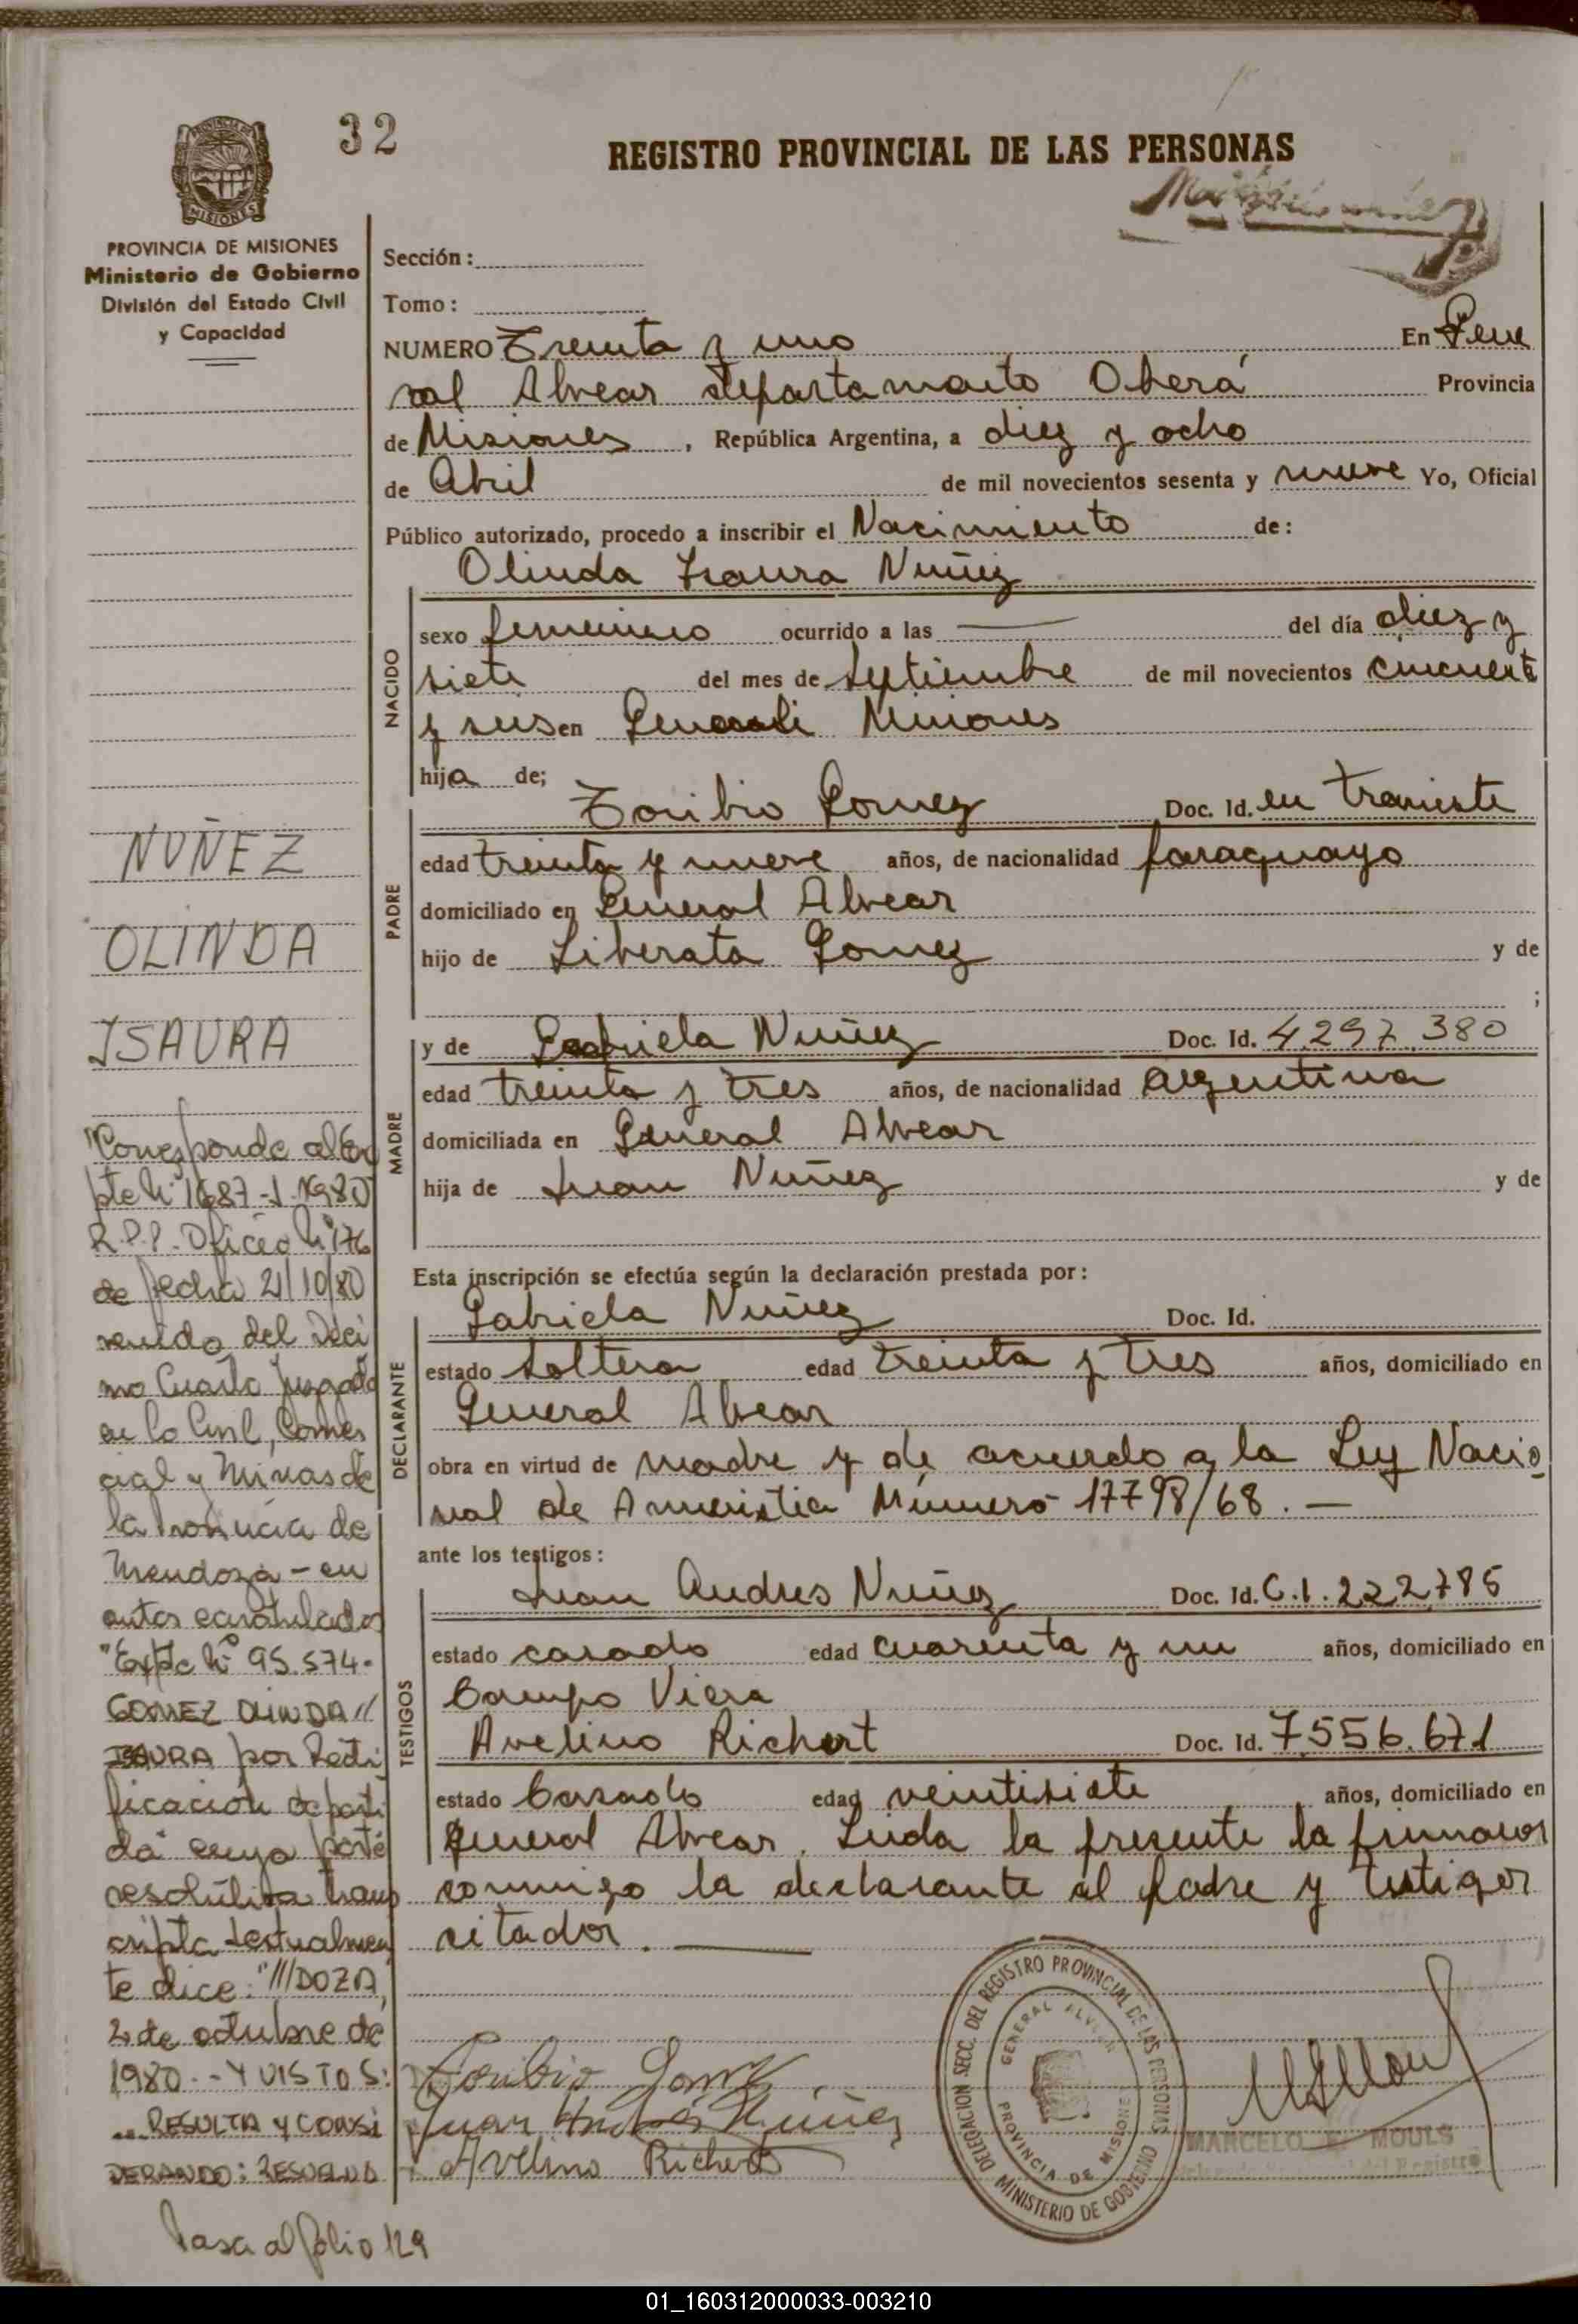 32
REGISTRO PROVINCIAL DE LAS PERSONAS
PROVINCIA DE MISIONES
Ministerio de Gobierno
División del Estado Civil
y Capacidad
Sección:
Tomo:
NUMERO Treinta y uno En Gene
ral Alvear departamento Oberá Provincia
de Misiones, República Argentina, a diez y ocho
de Abril de mil novecientos sesenta y nueve Yo, Oficial
Público autorizado, procedo a inscribir el Nacimiento de:
Olinda Isaura Nuñez
NACIDO
sexo femenino ocurrido a las — del día diez y
siete del mes de septiembre de mil novecientos cincuenta
y seis en Misiones
hija de;
Toribio Gomez Doc. Id. en tramite
PADRE
edad treinta y nueve años, de nacionalidad paraguayo
domiciliado en General Alvear
hijo de Liberata Gomez y de
;
y de Gabriela Nuñez Doc. Id. 4.297.380
MADRE
edad treinta y tres años, de nacionalidad argentina
domiciliada en General Alvear
hija de Juan Nuñez y de
Esta inscripción se efectúa según la declaración prestada por:
Gabriela Nuñez Doc. Id.
DECLARANTE
estado soltera edad treinta y tres años, domiciliado en
General Alvear
obra en virtud de madre y de acuerdo a la Ley Nacio
nal de Amnistia Número 17798/68. —
ante los testigos:
Juan Andres Nuñez Doc. Id. C.I. 222.785
TESTIGOS
estado casado edad cuarenta y un años, domiciliado en
Campo Viera
Avelino Richert Doc. Id. 7.556.671
estado Casado edad veintisiete años, domiciliado en
General Alvear. Leida la presente la firmaron
conmigo la declarante el padre y testigos
citados. —
Toribio Gomez
Juan Andrés Núñez
Avelino Richert
DELEGACION SECC. DEL REGISTRO PROVINCIAL DE LAS PERSONAS
MINISTERIO DE GOBIERNO
GENERAL ALVEAR
PROVINCIA DE MISIONES
MARCELO E. MOULS
NUÑEZ
OLINDA
ISAURA
"Corresponde al Ex
pte Nº 1687-J-1980
R.P.P. Oficio Nº 176
de fecha 21/10/80
venido del Deci
mo Cuarto Juzgado
en lo Civil, Comer
cial y Minas de
la Provincia de
Mendoza - en
autos caratulados
"Expte Nº 95.574-
GOMEZ OLINDA //
ISAURA por Recti
ficación de parti
da" cuya parte
resolutiva trans
cripta textualmen
te dice: "///DOZA,
2 de octubre de
1980.- Y VISTOS:
... RESULTA Y CONSI
DERANDO: RESUELVO
Pasa al folio 129
01_160312000033-003210